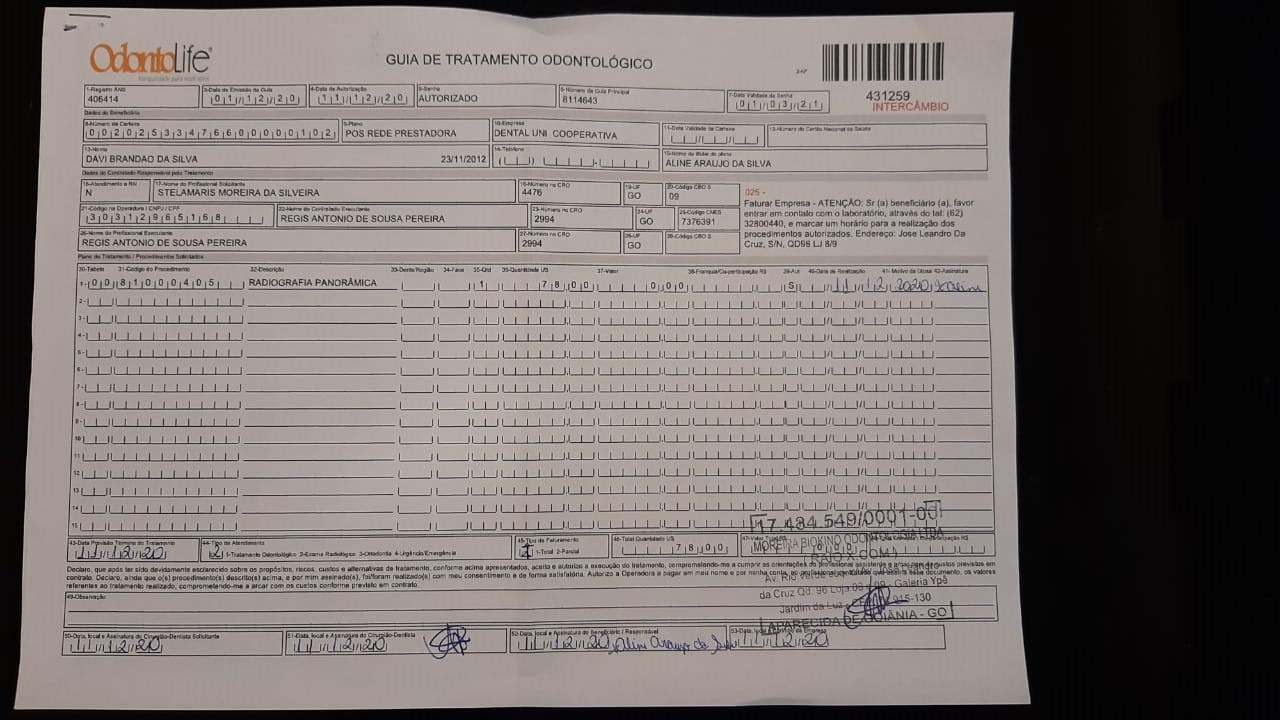 OdontoLife
GUIA DE TRATAMENTO ODONTOLÓGICO
2-Nº
431259
INTERCÂMBIO
1-Registro ANS 3-Data de Emissão da Guia 4-Data de Autorização 5-Senha 6-Número da Guia Principal 7-Data Validade da Senha
406414 01/12/20 11/12/20 AUTORIZADO 8114643 01/03/21
Dados do Beneficiário
8-Número da Carteira 9-Plano 10-Empresa 11-Data Validade da Carteira 12-Número do Cartão Nacional de Saúde
00202533476600000102 POS REDE PRESTADORA DENTAL UNI COOPERATIVA
13-Nome 14-Telefone 15-Nome do titular do plano
DAVI BRANDAO DA SILVA 23/11/2012 ALINE ARAUJO DA SILVA
Dados do Contratado Responsável pelo Tratamento
16-Atendimento a RN 17-Nome do Profissional Solicitante 18-Número no CRO 19-UF 20-Código CBO S
N STELAMARIS MOREIRA DA SILVEIRA 4476 GO 09
21-Código na Operadora / CNPJ / CPF 22-Nome do Contratado Executante 23-Número no CRO 24-UF 25-Código CNES
30312965168 REGIS ANTONIO DE SOUSA PEREIRA 2994 GO 7376391
26-Nome do Profissional Executante 27-Número no CRO 28-UF 29-Código CBO S
REGIS ANTONIO DE SOUSA PEREIRA 2994 GO
025 -
Faturar Empresa - ATENÇÃO: Sr (a) beneficiário (a), favor
entrar em contato com o laboratório, através do tel: (62)
32800440, e marcar um horário para a realização dos
procedimentos autorizados. Endereço: Jose Leandro Da
Cruz, S/N, QD96 LJ 8/9
Plano de Tratamento / Procedimentos Solicitados
30-Tabela 31-Código do Procedimento 32-Descrição 33-Dente/Região 34-Face 35-Qtd 36-Quantidade US 37-Valor 38-Franquia/Co-participação R$ 39-Aut 40-Data de Realização 41- Motivo da Glosa 42-Assinatura
1- 00 81000405 RADIOGRAFIA PANORÂMICA 1 78,00 0,00 S 11/12/2020 Aline
2-
3-
4-
5-
6-
7-
8-
9-
10
11
12
13
14
15
43-Data Previsão Término do Tratamento 44-Tipo de Atendimento 45-Tipo de Faturamento 46-Total Quantidade US
11/12/20 2 1-Tratamento Odontológico 2-Exame Radiológico 3-Ortodontia 4-Urgência/Emergência 1 1-Total 2-Parcial 78,00
17.484.549/0001-00
MOREIRA BIOKINO ODONTOLOGIA LTDA
( RAIO X.COM )
da Cruz Qd. 96 Loja 08 e 09 - Galeria Ypê
Jardim da Luz - 915-130
APARECIDA DE GOIÂNIA - GO
Declaro, que após ter sido devidamente esclarecido sobre os propósitos, riscos, custos e alternativas de tratamento, conforme acima apresentados, aceito e autorizo a execução do tratamento, comprometendo-me a cumprir as orientações do profissional assistente e arcar com os custos previstos em
contrato. Declaro, ainda que o(s) procedimento(s) descrito(s) acima, e por mim assinado(s), foi/foram realizado(s) com meu consentimento e de forma satisfatória. Autorizo a Operadora a pagar em meu nome e por minha conta, ao profissional contratado que assina esse documento, os valores
referentes ao tratamento realizado, comprometendo-me a arcar com os custos conforme previsto em contrato.
49-Observação
50-Data, local e Assinatura do Cirurgião-Dentista Solicitante 51-Data, local e Assinatura do Cirurgião-Dentista 52-Data, local e Assinatura do Beneficiário / Responsável 53-Data, local e da Empresa
11/12/20 11/12/20 11/12/20 Aline Araujo da Silva 11/12/20